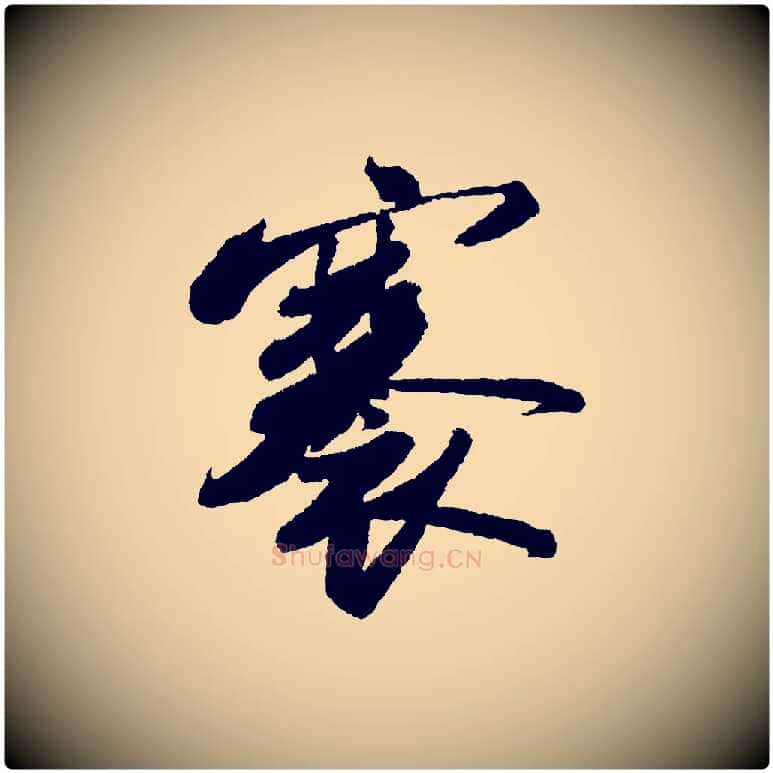 褰
Shufawang.CN